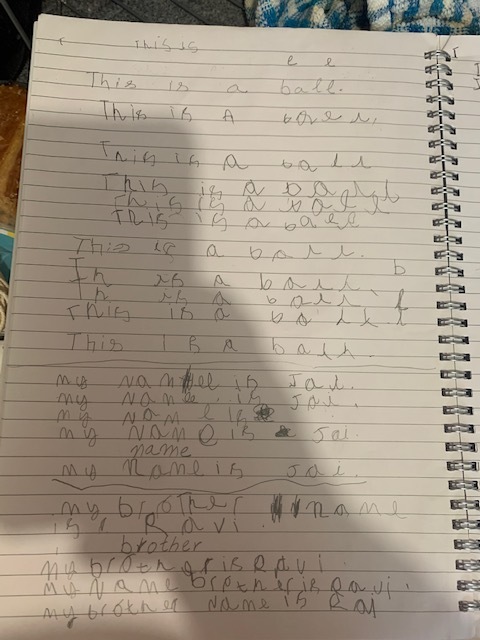 This is
e e
This is a ball.
This is A
This is A ball
This is a ball
This is a ball
This is a ball
This is a ball.
b
Th is a ball.
Th is a ball
This is a
This is a ball.
my name is Jai.
my name is Jai.
my name is
my name is Jai
name
my name is Jai.
my brother name
is Ravi.
brother
my brother is Ravi.
my name brother is Ravi.
my brother name is Rai